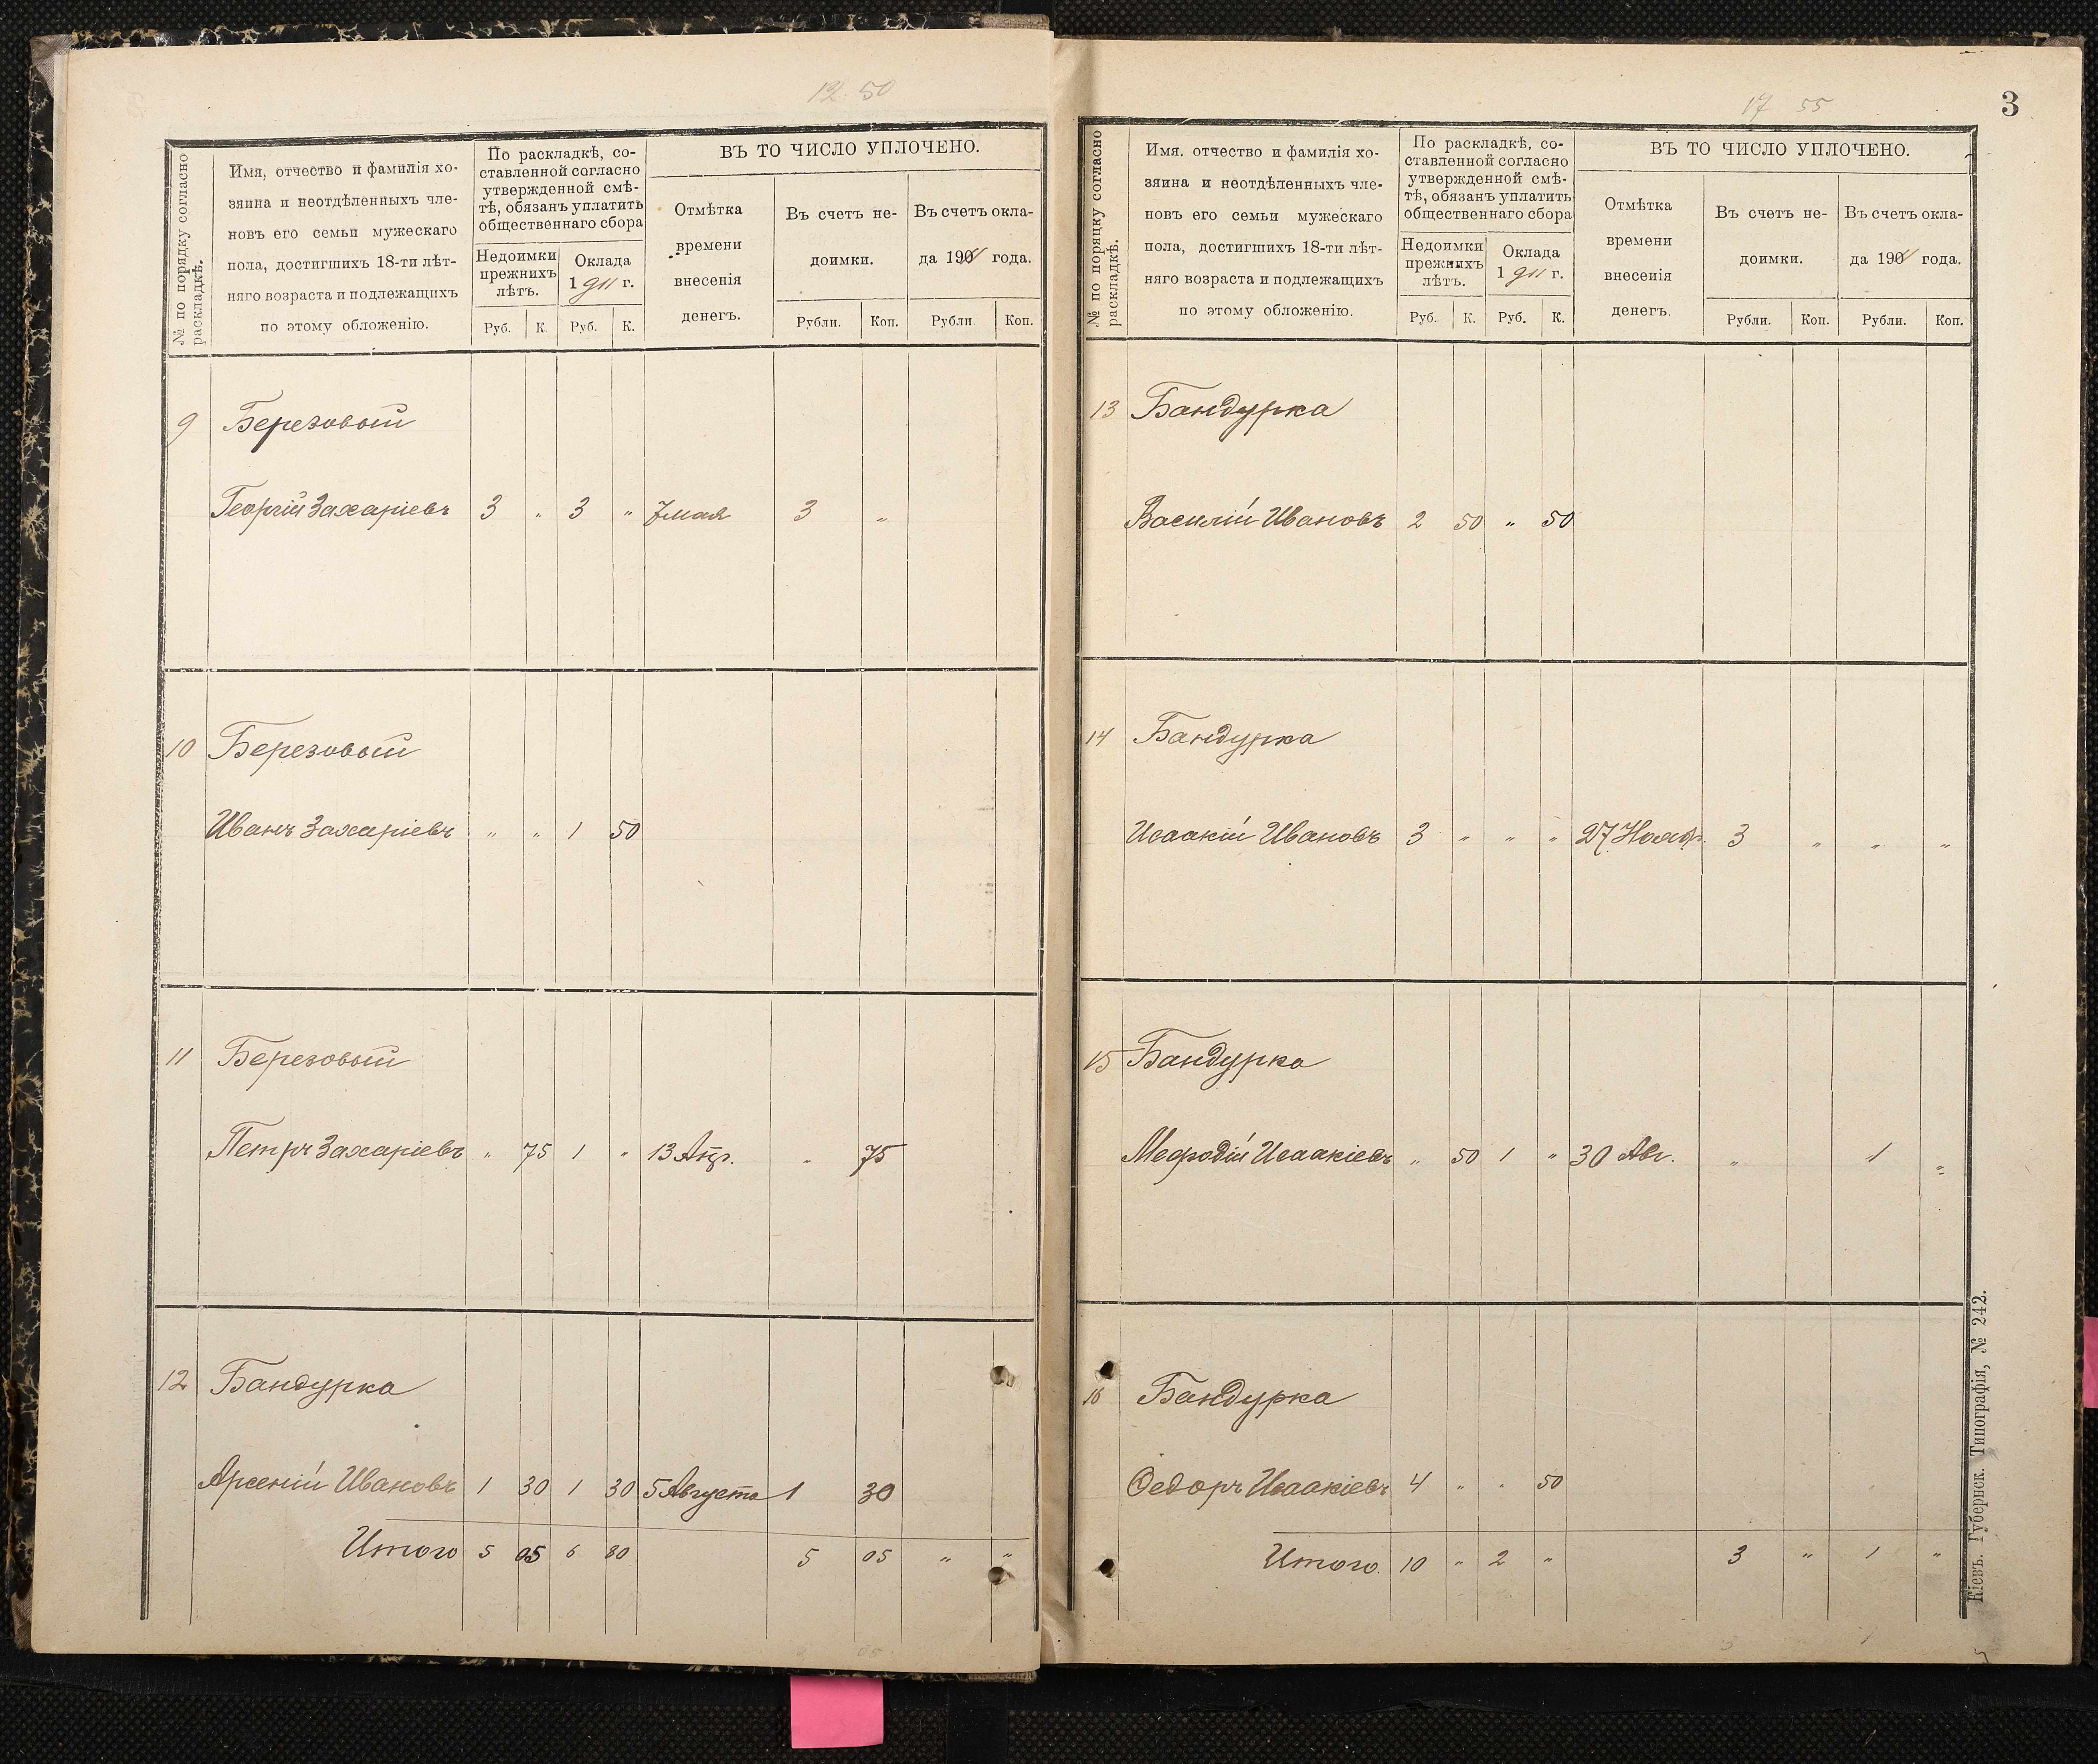 12 50
№ по порядку согласно раскладкѣ.
Имя, отчество и фамилія хо-
зяина и неотдѣленныхъ чле-
новъ его семьи мужескаго
пола, достигшихъ 18-ти лѣт-
няго возраста и подлежащихъ
по этому обложенію.
По раскладкѣ, со-
ставленной согласно
утвержденной смѣ-
тѣ, обязанъ уплатить
общественнаго сбора
Недоимки
прежнихъ
лѣтъ.
Оклада
1911 г.
Руб. К. Руб. К.
ВЪ ТО ЧИСЛО УПЛОЧЕНО.
Отмѣтка
времени
внесенія
денегъ.
Въ счетъ не-
доимки.
Въ счетъ окла-
да 190 года.
Рубли. Коп. Рубли Коп.
9 Березовый
Георгій Захаріевъ 3 „ 3 „ 7 мая 3 „
10 Березовый
Иванъ Захаріевъ „ „ 1 50
11 Березовый
Петръ Захаріевъ „ 75 1 „ 13 Апр. „ 75
12 Бандурка
Арсеній Ивановъ 1 30 1 30 5 Августа 1 30
Итого 5 05 6 80 5 05 „ „
17 55
3
№ по порядку согласно раскладкѣ.
Имя. отчество и фамилія хо-
зяина и неотдѣленныхъ чле-
новъ его семьи мужескаго
пола, достигшихъ 18-ти лѣт-
няго возраста и подлежащихъ
по этому обложенію.
По раскладкѣ, со-
ставленной согласно
утвержденной смѣ-
тѣ, обязанъ уплатить
общественнаго сбора
Недоимки
прежнихъ
лѣтъ.
Оклада
1911 г.
Руб. К. Руб. К.
ВЪ ТО ЧИСЛО УПЛОЧЕНО.
Отмѣтка
времени
внесенія
денегъ.
Въ счетъ не-
доимки.
Въ счетъ окла-
да 190 года.
Рубли. Коп. Рубли. Коп.
13 Бандурка
Василій Ивановъ 2 50 „ 50
14 Бандурка
Исаакій Ивановъ 3 „ „ „ 27 Нояб. 3 „ „ „
15 Бандурка
Мефодій Исаакіевъ „ 50 1 „ 30 Авг. „ 1 „
16 Бандурка
Ѳедоръ Исаакіевъ 4 „ „ 50
Итого. 10 „ 2 „ 3 „ 1 „
Кіевъ. Губернск. Типографія, № 242.